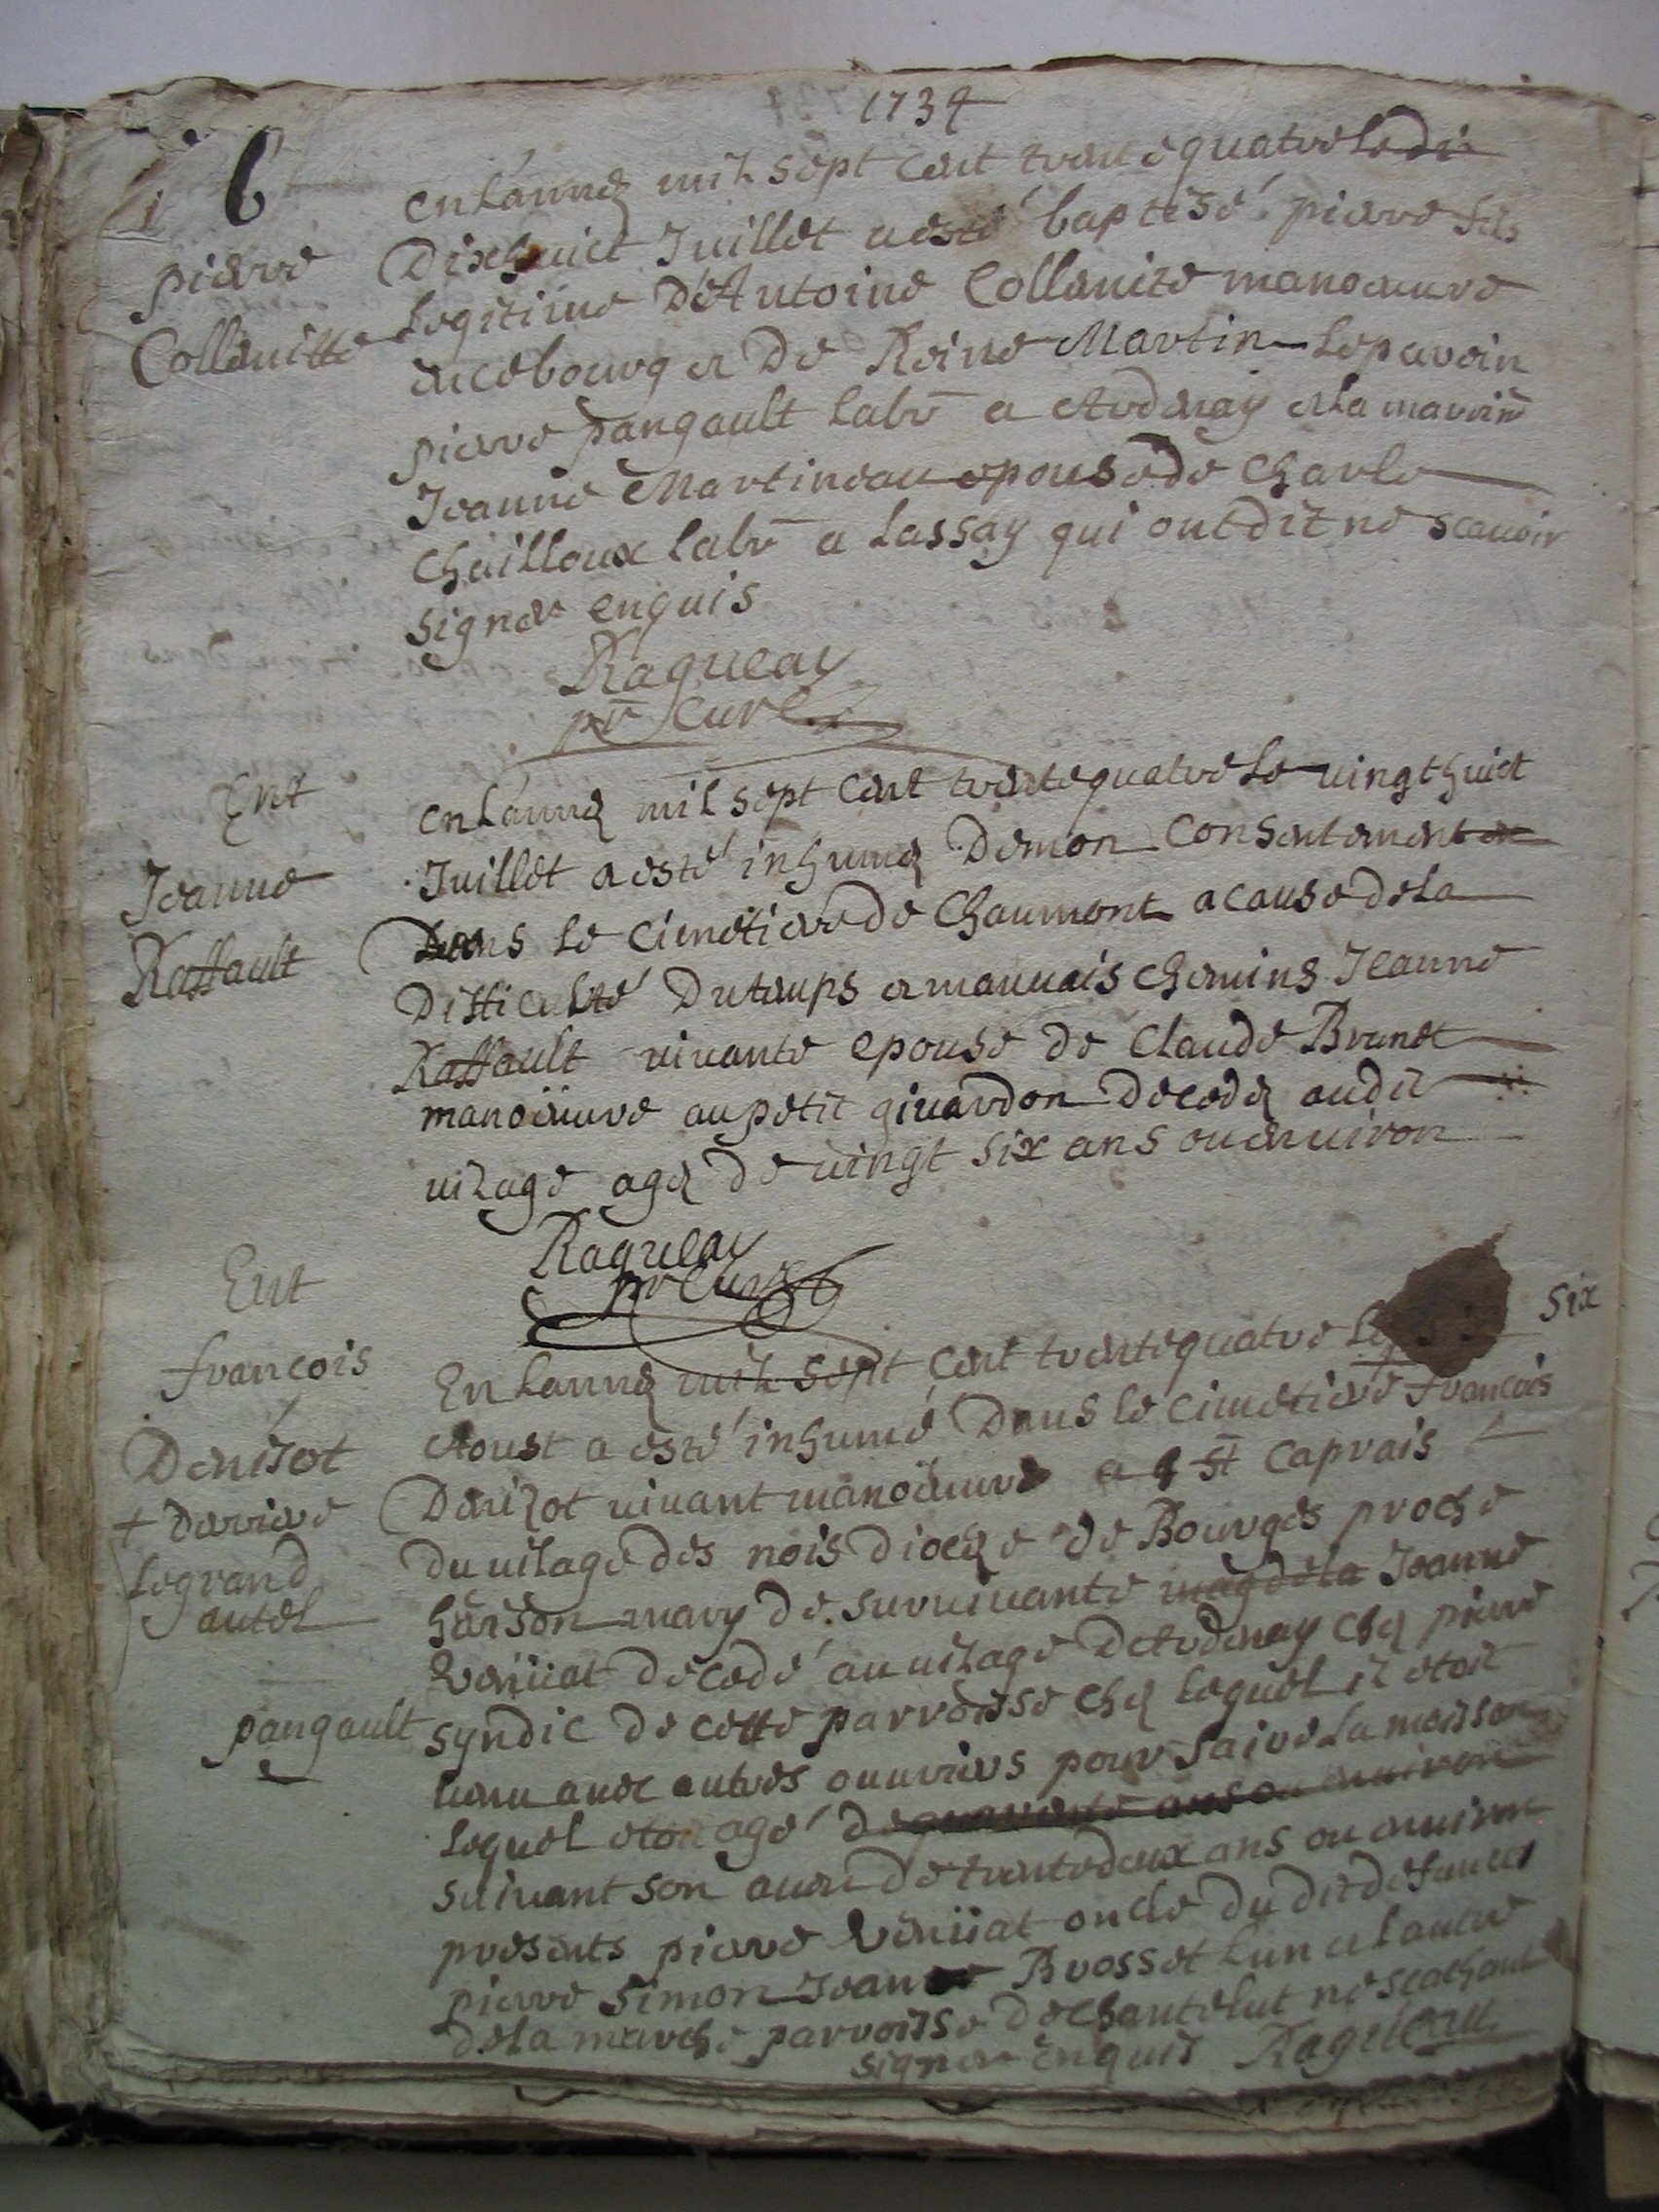 1734
B
pierre
Collenitte
en l'année mil sept cent trente quatre le dix
Dixhuict Juillet a esté baptesé pierre fils
Legitime D'Antoine Collenite manoeuvre
en ce bourg et De Reine Martin Le parein
pierre pangault labr a Ardenay et La mareine
Jeanne Martineau epouse de Charle
Chailloux labr a Lassay qui ont dit ne scauoir
signer enquis
Ragueau
pr Curé
Ent
Jeanne
Raffault
en L'année mil sept cent trente quatre Le uingt huict
Juillet a esté inhumée De mon Consentement et
Dans Le Cimetiere de Chaumont a cause de La
Difficulté Du temps et mauuais chemins Jeanne
Raffault uiuante epouse de Claude Brunet
manoeuure au petit giuardon Decedée audit
uilage agée De uingt six ans ou enuiron
Ragueau
pr Curé
Ent
francois
Denisot
+ Deriere
Le grand
autel
En Lannée mil sept cent trente quatre Le six
Aoust a esté inhumé Dans le Cimetiere + francois
Denizot uiuant manoeuure a St Caprais
Du uilage des nois Diocese de Bourges proche
mary De suruiuante magdela Jeanne
Veniiat Decedé au uilage D'Ardenay chez pierre
pangault
syndic De cette parroisse chez Lequel il etoit
uenu auec autres ouuriers pour faire La moisson
Lequel etoit agé De quarente ans ou enuiron
suiuant son aueu De trente deux ans ou enuiron
presents pierre Veniiat oncle Du dit defunct
pierre Simon Jean Brosset Lun et Lautre
De La marche parroisse De Chantelut ne scachant
signer enquis Ragueau